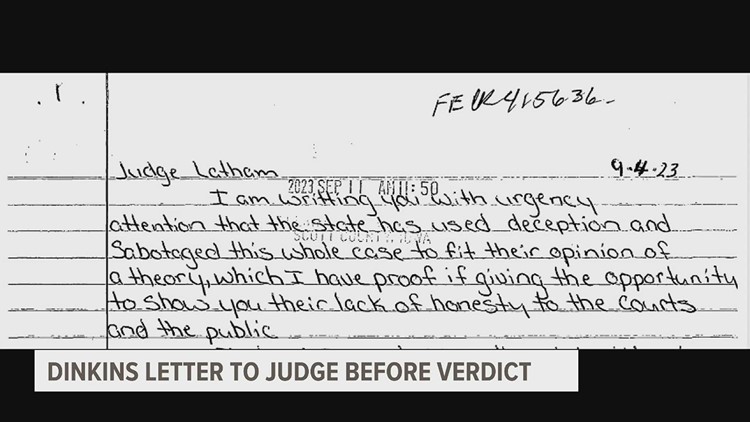 . 1 .
FECR415636.
Judge Latham 9-4-23
2023 SEP 11 AM 11:50
I am writting you with urgency
attention that the state has used deception and
SCOTT COUNTY, IOWA
Sabotaged this whole case to fit their opinion of
a theory, which I have proof if giving the opportunity
to show you their lack of honesty to the Courts
and the public
DINKINS LETTER TO JUDGE BEFORE VERDICT